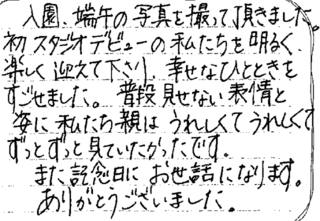 入園、端午の写真を撮って頂きました。
初スタジオデビューの私たちを明るく、
楽しく迎えて下さり、幸せなひとときを
すごせました。普段見せない表情と
姿に私たち親はうれしくてうれしくて
ずっとずっと見ていたかったです。
また記念日にお世話になります。
ありがとうございました。